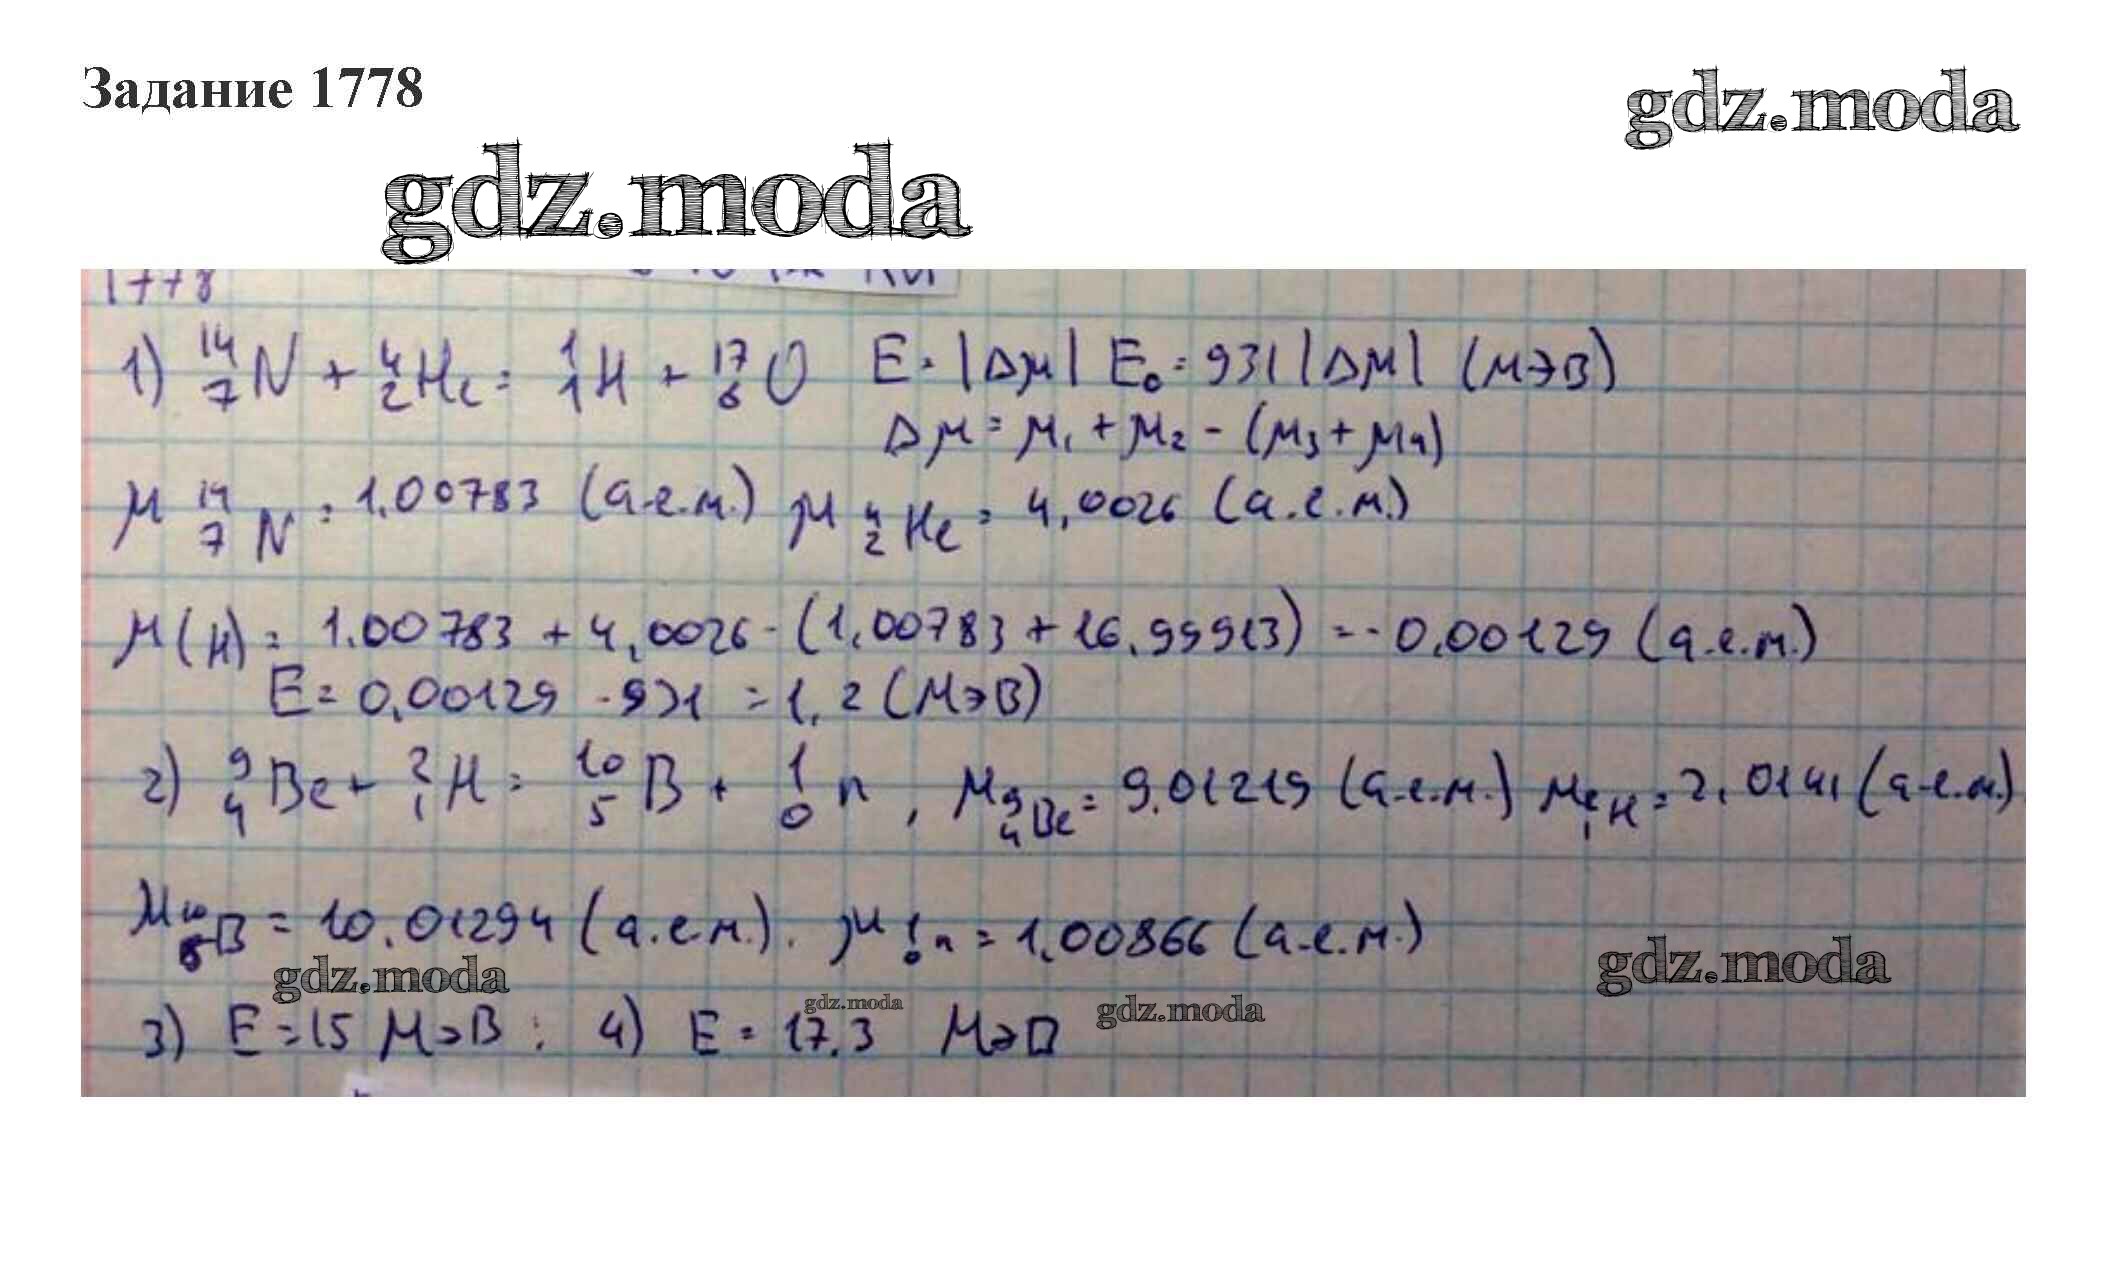 Задание 1778
gdz.moda
gdz.moda
1778
1) ¹⁴₇N + ⁴₂He = ¹₁H + ¹⁷₈O E = |Δμ| E₀ = 931 |Δμ| (МэВ)
Δμ = μ₁ + μ₂ - (μ₃ + μ₄)
μ ¹⁴₇N = 1,00783 (а.е.м.) μ ⁴₂He = 4,0026 (а.е.м.)
μ(H) = 1.00783 + 4,0026 - (1,00783 + 16,99913) = -0,00129 (а.е.м.)
E = 0,00129 · 931 = 1,2 (МэВ)
2) ⁹₄Be + ²₁H = ¹⁰₅B + ¹₀n , μ ⁹₄Be = 9.01219 (а.е.м.) μ ²₁H = 2,0141 (а.е.м.)
μ ¹⁰₅B = 10,01294 (а.е.м.). μ ¹₀n = 1,00866 (а.е.м.)
gdz.moda gdz.moda gdz.moda gdz.moda
3) E = 15 МэВ ; 4) E = 17,3 МэВ